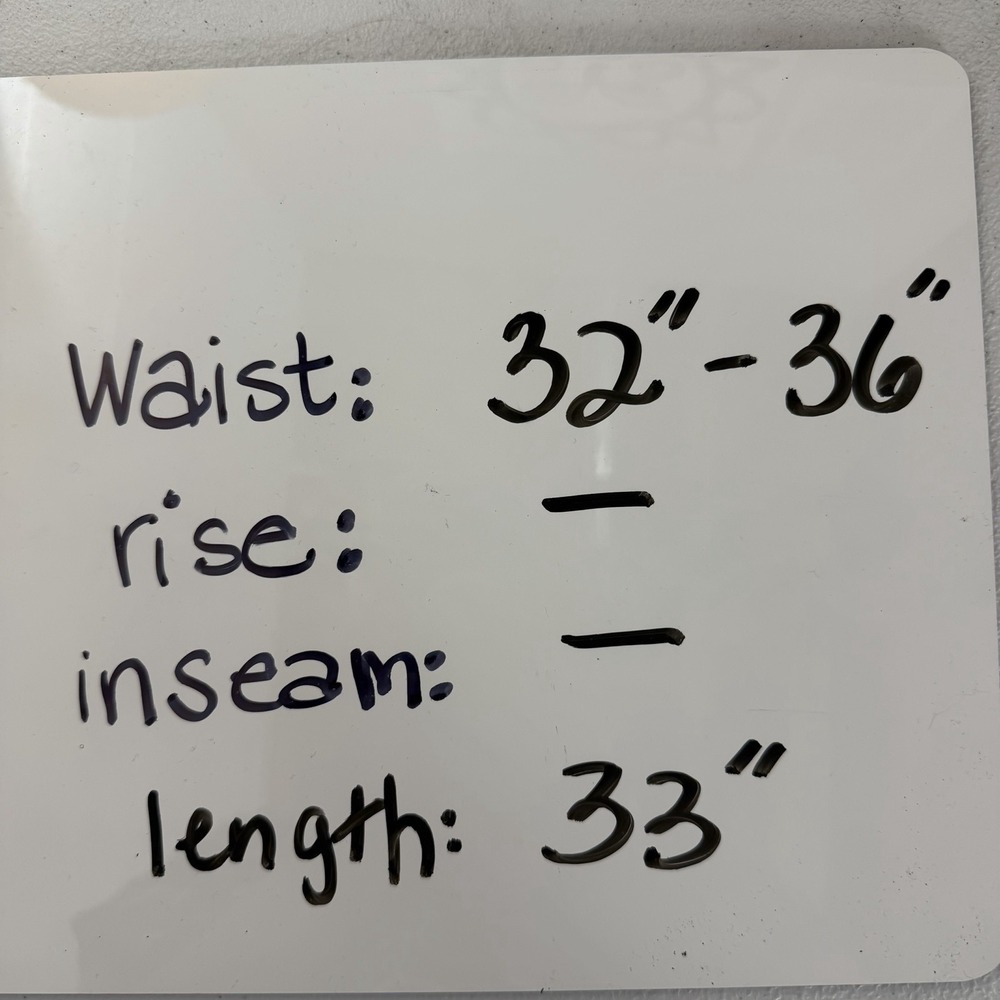 Waist: 32" - 36"
rise: —
inseam: —
length: 33"